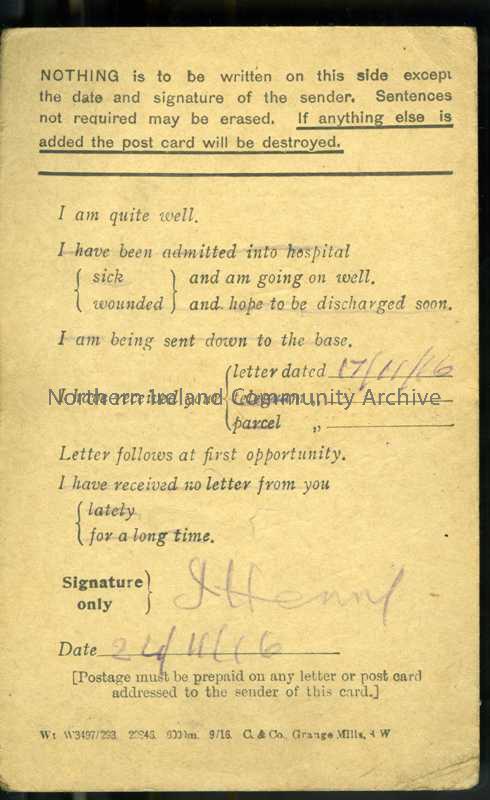 NOTHING is to be written on this side except
the date and signature of the sender. Sentences
not required may be erased. If anything else is
added the post card will be destroyed.
I am quite well.
I have been admitted into hospital
sick and am going on well.
wounded and hope to be discharged soon.
I am being sent down to the base.
letter dated 17/11/16
I have received your telegram „
parcel „
Northern Ireland Community Archive
Letter follows at first opportunity.
I have received no letter from you
lately
for a long time.
Signature
only
J Henry
Date 24/11/16
[Postage must be prepaid on any letter or post card
addressed to the sender of this card.]
Wt W3497/293. 9/16. C. & Co., Grange Mills, S W